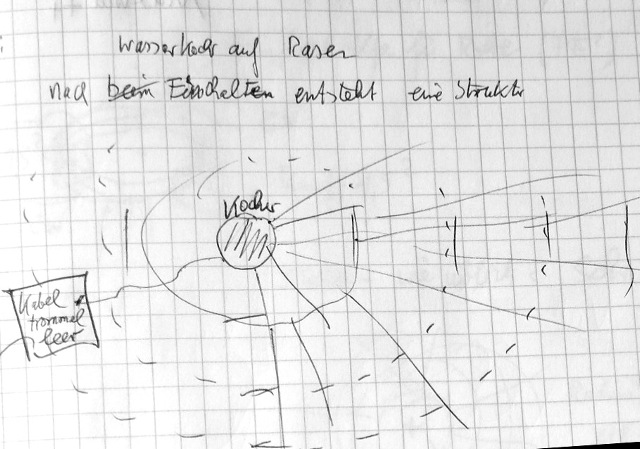 Wasserkochr auf Rasen
nach beim Einschalten entsteht eine Struktr
Kocher
Kabel
trommel
leer